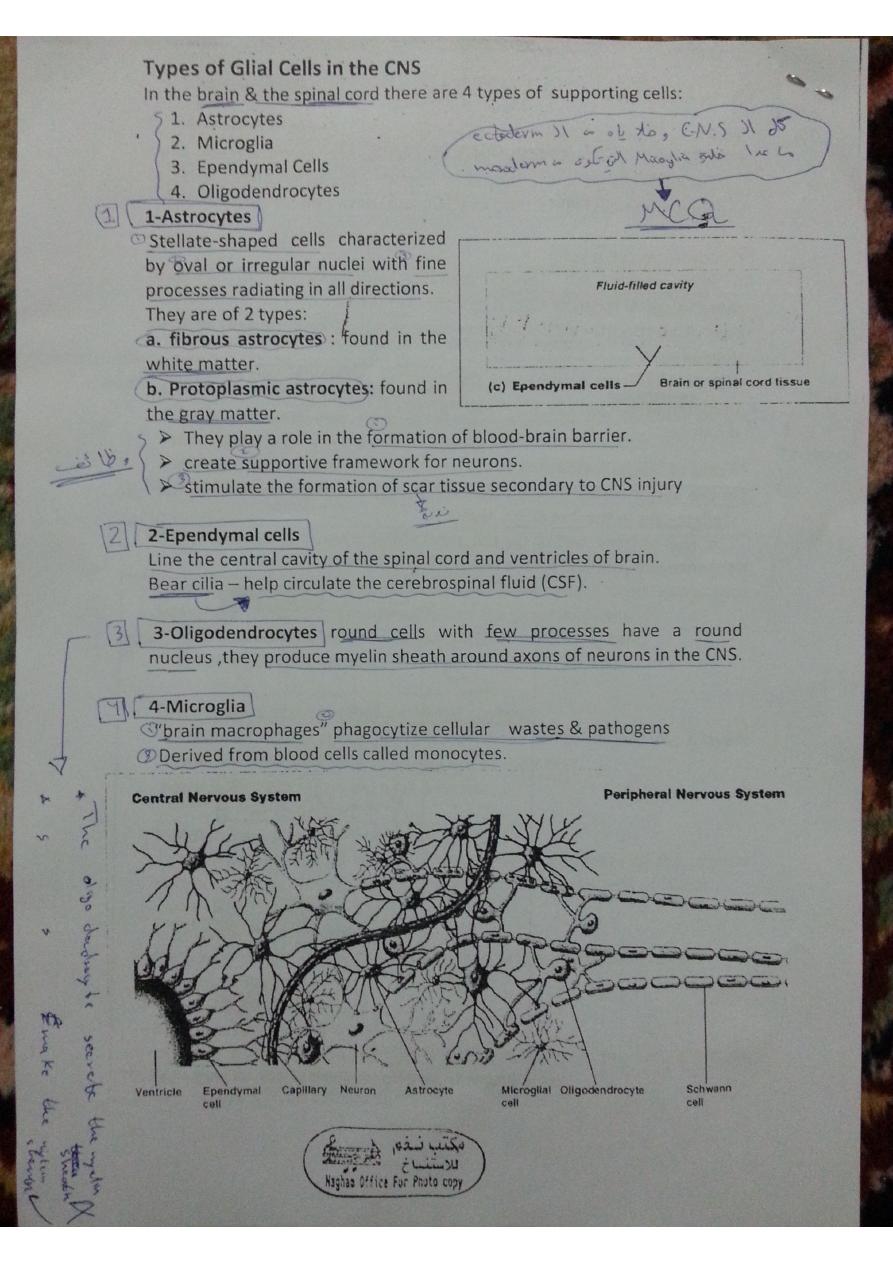 Types of Glial Cells in the CNS
In the brain & the spinal cord there are 4 types of supporting cells:
1. Astrocytes
2. Microglia
3. Ependymal Cells
4. Oligodendrocytes
كل الـ C.N.S ectoderm
ما عدا Microglia mesoderm
MCQ
1 1-Astrocytes
Stellate-shaped cells characterized
by oval or irregular nuclei with fine
processes radiating in all directions.
They are of 2 types:
a. fibrous astrocytes : found in the
white matter.
b. Protoplasmic astrocytes: found in
the gray matter.
Fluid-filled cavity
(c) Ependymal cells
Brain or spinal cord tissue
➢ They play a role in the formation of blood-brain barrier.
➢ create supportive framework for neurons.
➢ stimulate the formation of scar tissue secondary to CNS injury
وظائف
ندبة
2 2-Ependymal cells
Line the central cavity of the spinal cord and ventricles of brain.
Bear cilia – help circulate the cerebrospinal fluid (CSF).
3 3-Oligodendrocytes round cells with few processes have a round
nucleus ,they produce myelin sheath around axons of neurons in the CNS.
4 4-Microglia
① "brain macrophages" ② phagocytize cellular wastes & pathogens
Derived from blood cells called monocytes.
* The oligodendrocyte secrete the myelin sheath X
make the myelin sheath ✓
Central Nervous System
Peripheral Nervous System
Ventricle
Ependymal
cell
Capillary
Neuron
Astrocyte
Microglial
cell
Oligodendrocyte
Schwann
cell
مكتب نغم
للاستنساخ
Nagham Office For Photo copy